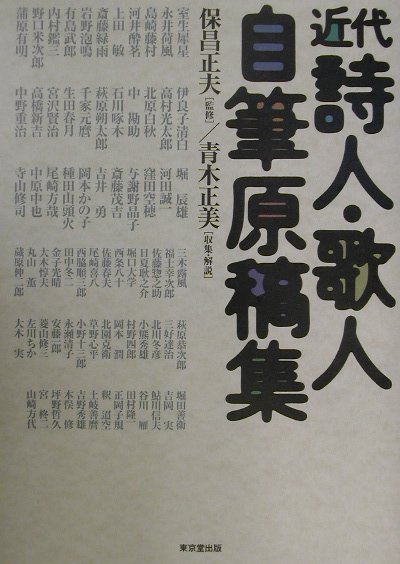 近代
詩人・歌人
自筆原稿集
保昌正夫[監修]/青木正美[収集・解説]
室生犀星 伊良子清白 堀 辰雄
永井荷風 高村光太郎 河田誠一
島崎藤村 北原白秋 窪田空穂
河井酔茗 中 勘助 与謝野晶子
上田 敏 石川啄木 斎藤茂吉
斎藤緑雨 萩原朔太郎 吉井 勇
岩野泡鳴 千家元麿 岡本かの子
有島武郎 生田春月 種田山頭火
内村鑑三 宮沢賢治 尾崎放哉
野口米次郎 高橋新吉 中原中也
蒲原有明 中野重治 寺山修司
三木露風 萩原恭次郎 堀田善衛
福士幸次郎 三好達治 吉岡 実
佐藤惣之助 北川冬彦 鮎川信夫
日夏耿之介 小熊秀雄 谷川 雁
堀口大学 村野四郎 田村隆一
西条八十 岡本 潤 正岡子規
佐藤春夫 北園克衛 釈 迢空
尾崎喜八 草野心平 土岐善麿
西脇順三郎 小野十三郎 吉野秀雄
田中冬二 永瀬清子 木俣 修
金子光晴 安藤一郎 坪野哲久
大木惇夫 菱山修三 宮 柊二
丸山 薫 左川ちか 山崎方代
蔵原伸二郎 大木 実
東京堂出版